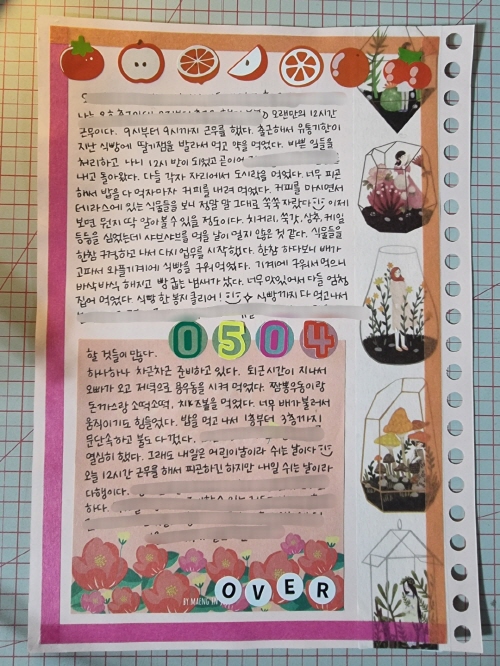 오랜만의 12시간
근무이다. 9시부터 9시까지 근무를 했다. 출근해서 유통기한이
지난 식빵에 딸기잼을 발라서 먹고 약을 먹었다. 바쁜 일들을
처리하고 나니 12시 반이 되었고 곧이어
내고 돌아왔다. 다들 각자 자리에서 도시락을 먹었다. 너무 피곤
해서 밥을 다 먹자마자 커피를 내려 먹었다. 커피를 마시면서
테라스에 있는 식물들을 보니 정말 말 그대로 쑥쑥 자랐다 이제
보면 뭔지 딱 알아볼 수 있을 정도이다. 치커리, 쑥갓, 상추, 케일
등등을 심었는데 샤브샤브를 먹을 날이 멀지 않은 것 같다. 식물들을
한참 구경하고 나서 다시 업무를 시작했다. 한참 하다보니 배가
고파서 와플기계에 식빵을 구워 먹었다. 기계에 구워서 먹으니
바삭바삭 해지고 빵 굽는 냄새가 났다. 너무 맛있어서 다들 엄청
집어 먹었다. 식빵 한 봉지 클리어! 식빵까지 다 먹고 나서
0504
할 것들이 많다.
하나하나 차근차근 준비하고 있다. 퇴근시간이 지나서
오빠가 오고 저녁으로 용우동을 시켜 먹었다. 짬뽕우동이랑
돈까스랑 소떡소떡, 치즈볼을 먹었다. 너무 배가 불러서
움직이기도 힘들었다. 밥을 먹고 나서 1층부터 3층까지
문단속하고 불도 다 껐다.
열심히 했다. 그래도 내일은 어린이날이라 쉬는 날이다
오늘 12시간 근무를 해서 피곤하긴 하지만 내일 쉬는 날이라
다행이다.
하다.
BY. MAENG IN
OVER